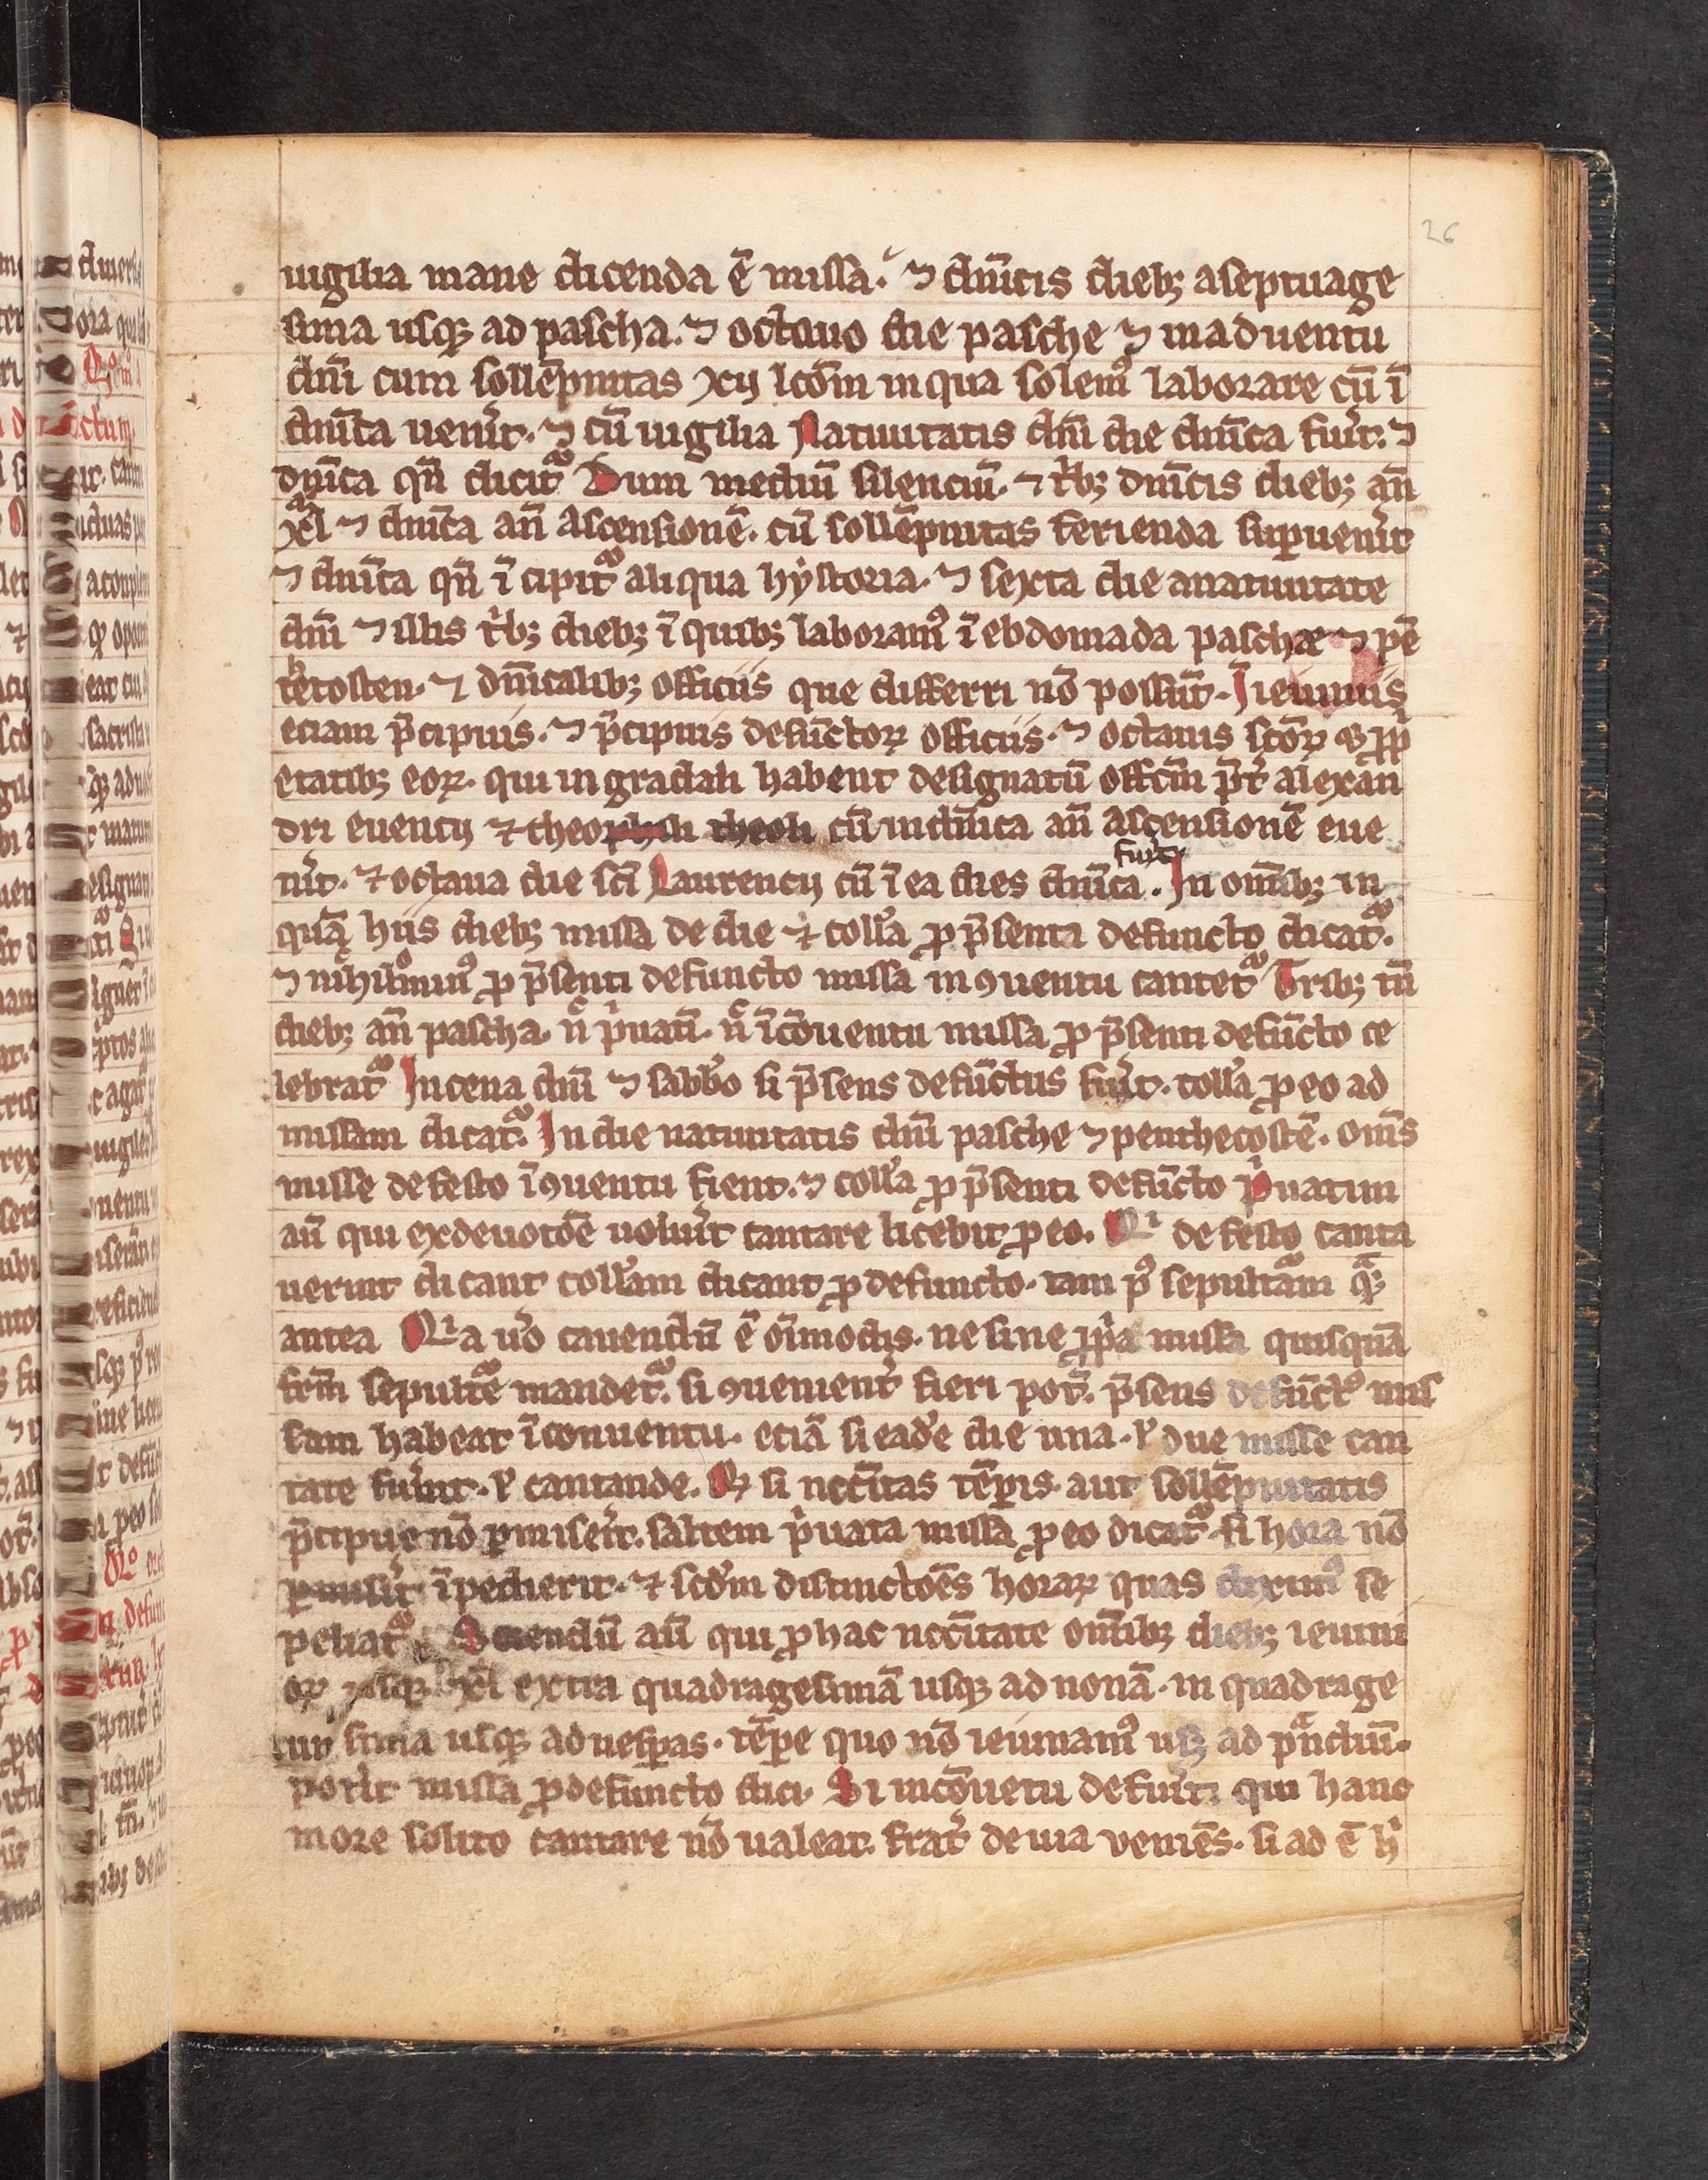 26
uigilia mane dicenda ē missa. ⁊ dn̄icis dieb; aseptuage
sima usq; ad pascha. ⁊ octauo die pasche ⁊ inaduentu
dn̄i cum sollēpnitas xij lcōm in qua solem⁹ laborare cū ī
dn̄ica uen̄it. ⁊ cū uigilia Natiuitatis dn̄i die dn̄ica fuīt. ⁊
dn̄ica qn̄ dicit᷑ Dum mediū silenciū. ⁊ t̄b; dn̄icis dieb; an̄
xl̄ ⁊ dn̄ica an̄ ascensionē. cū sollēpnitas ferienda sup̄uen̄it
⁊ dn̄ica qn̄ ī cipit᷑ aliqua hẏstoria. ⁊ sexta die anatiuitate
dn̄i ⁊ illis t̄b; dieb; ī quib; laboram⁹ ī ebdomada paschæ ⁊ pē
tecosten. ⁊ dn̄icalib; officiis que differri nō possūt. Jieiuniis
eciam p̄cipuis. ⁊ p̄cipuis defūctoꝝ officiis. ⁊ octauis sc̄oꝝ
etatib; eoꝝ. qui in gradali habent designatū offic̄m p̄t̄ alexan
dri euencij ⁊ theo cū indn̄ica an̄ ascensionē eue
fuīt
nīt. ⁊ octaua die sc̄i Laurencij cū ī ea dies dn̄ica. Jn om̄ib; in
quā hiis dieb; missa de die ⁊ coll̄a ꝓ p̄senti defuncto dicat᷑.
⁊ nihilmin⁹ ꝓ p̄senti defuncto missa in ꝯuentu cantet᷑ Trib; tn̄
dieb; an̄ pascha. n̄ p̄uati. n̄ īcōuentu missa ꝓ p̄senti defūcto ce
lebrat᷑ Jncena dn̄i ⁊ sabb̄o si p̄sens defūctus fuīt. coll̄a ꝓ eo ad
missam dicat᷑. Jn die natiuitatis dn̄i pasche ⁊ penthecostē. om̄s
misse de festo ī ꝯuentu fient. ⁊ coll̄a ꝓ p̄senti defūcto p̄uatim
aū qui exdeuotōe uolūit cantare licebit ꝓ eo. Qⁱ de festo canta
uerint dicant coll̄am dicant ꝓ defuncto. tam p⁹ sepultᷓam qᷓ;
antea Qⁱa u̾o cauendū ē oīmodis. ne sine ꝓp̄a missa quisquā
fr̄m sepulte᷑ mandet᷑. si ꝯuenient̾ fieri pot̄. p̄sens defūct⁹ mis
sam habeat īconuentu. eciā si ead̄e die una. ł due misse can
tate fu̾int. ł cantande. Qꝫ si necc̄itas tēp̄is. aut sollēpnitatis
p̄cipue nō ꝑmiserit. saltem p̄uata missa ꝓ eo dicat᷑. si hora nō
ꝑmisīt īpedierit. ⁊ scd̄m distinctōes horaꝝ quas diximus se
peliat᷑ Sciendū aū qui ꝓ hac necc̄itate om̄ib; dieb; ieiuni
oꝝ usq; xl̄ extra quadragesimā usq; ad nonā. in quadrage
sima usq; ad uesp̄as. tēp̄e quo nō ieiunam⁹ usq; ad p̄ndiū.
pot̄it missa ꝓ defuncto dici. Si incōuetu defuīt. qui hanc
more solito cantare nō ualeat. frat̄ de uia veniēs. si ad ē h̄